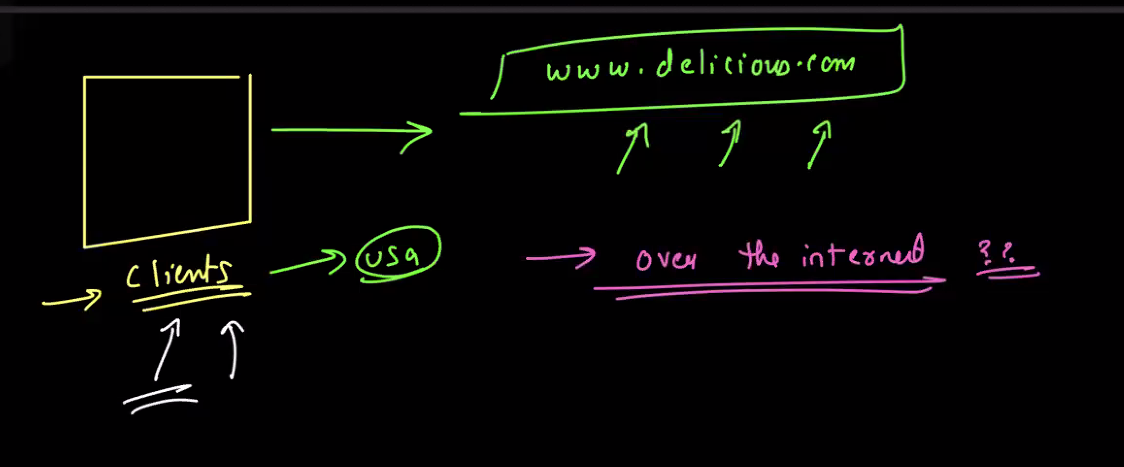 www.delicious.com
clients
usa
over the internet ??